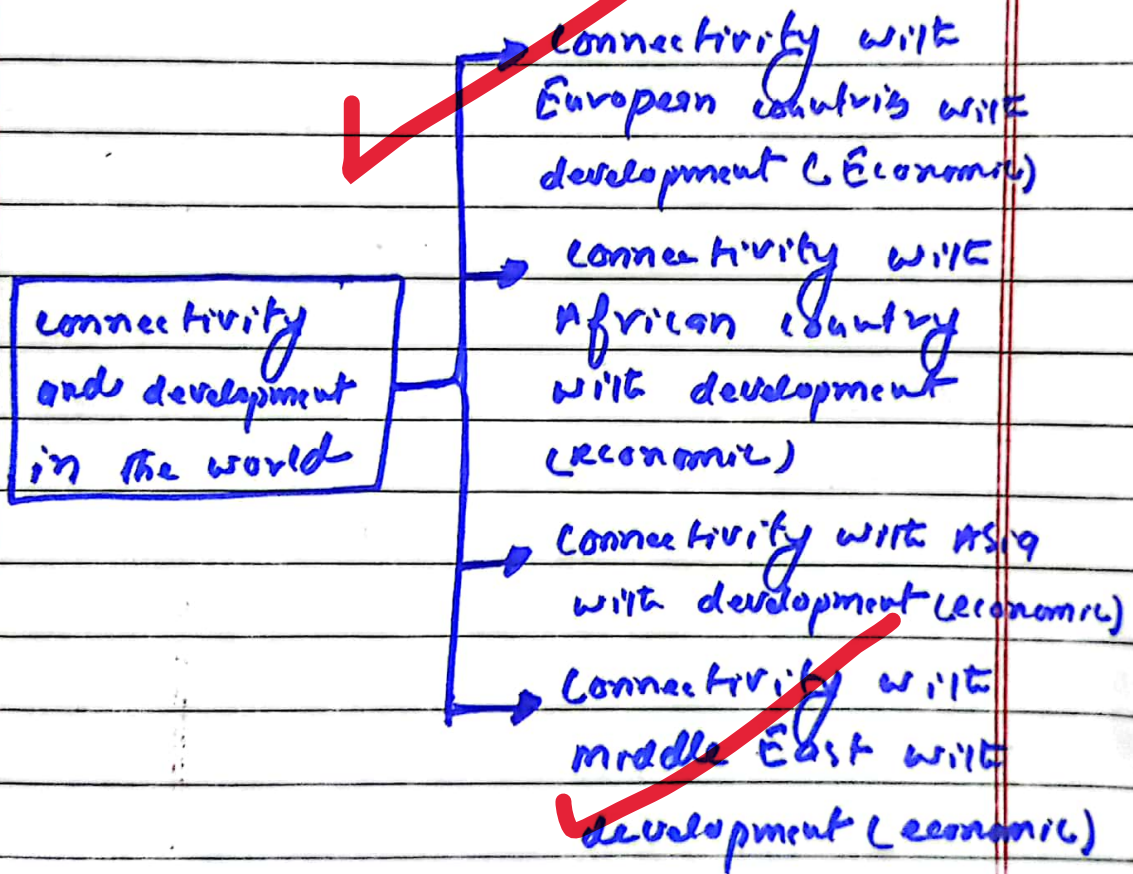 connectivity
and development
in the world
Connectivity with
European countries with
development (Economic)
connectivity with
African country
with development
(economic)
Connectivity with Asia
with development (economic)
Connectivity with
Middle East with
development (economic)